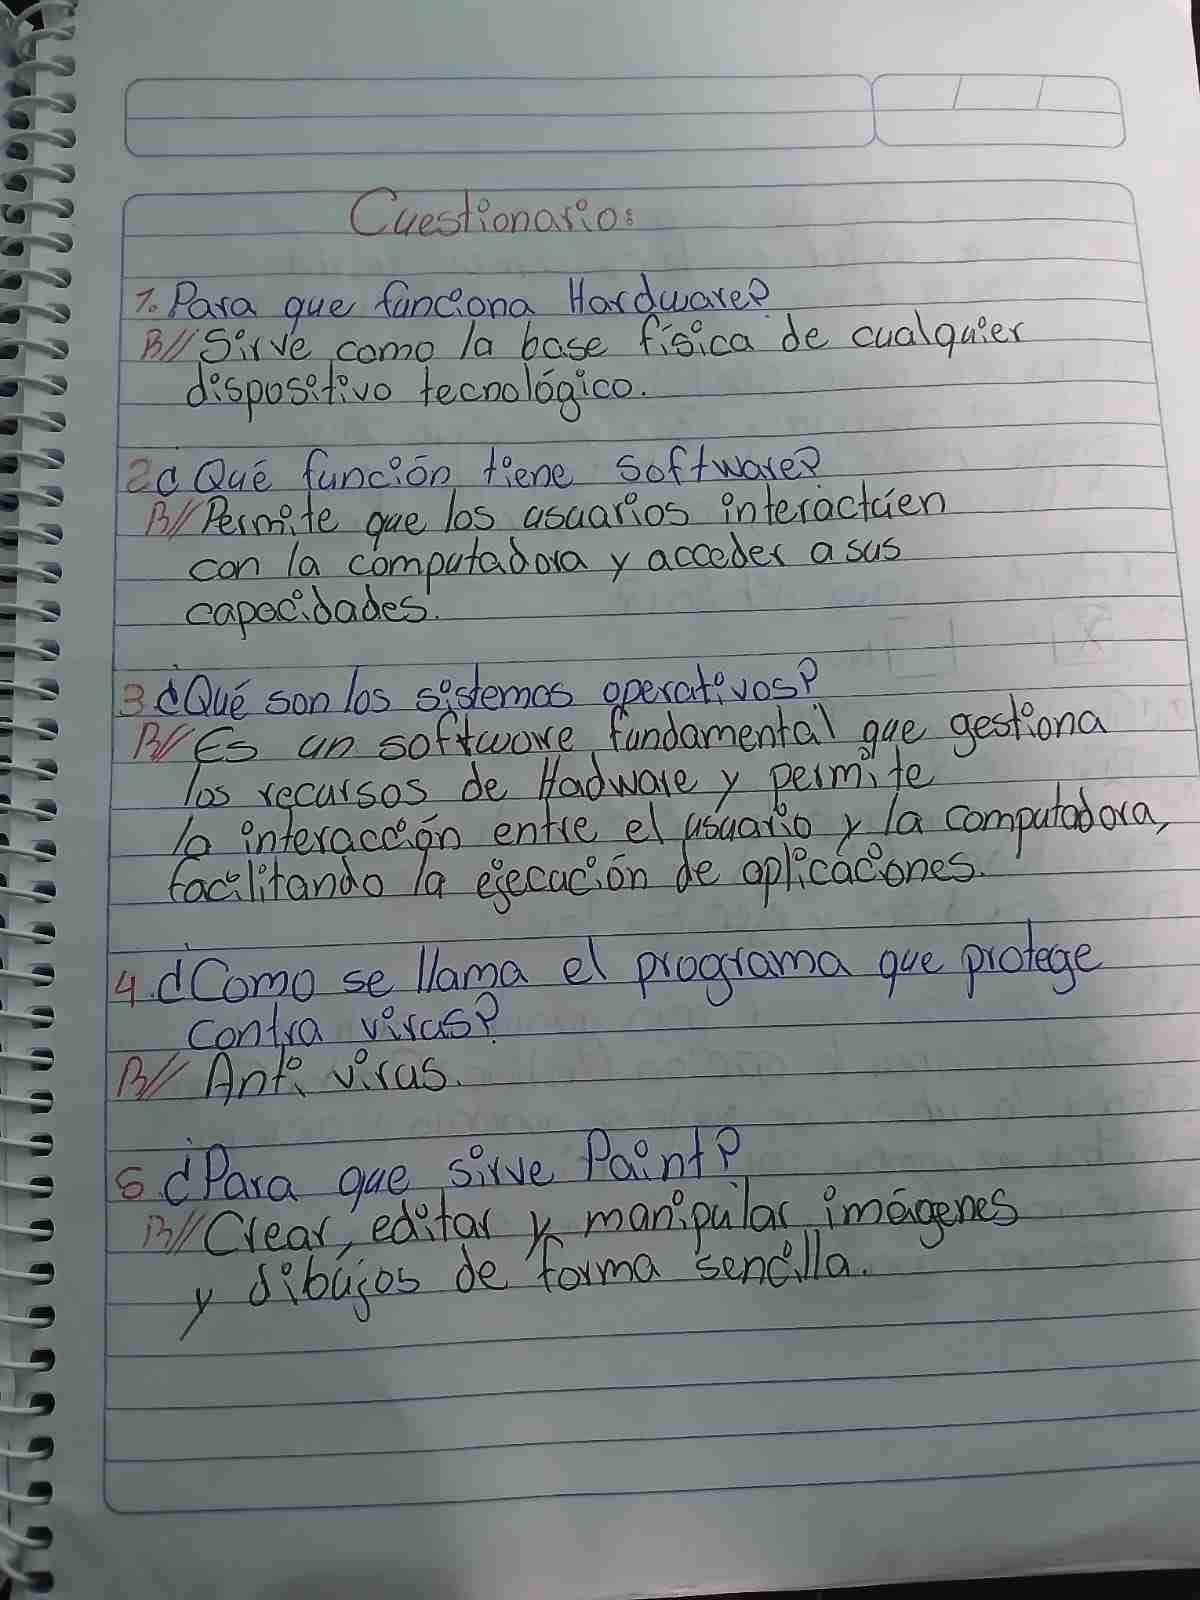 Cuestionario:
1. Para que funciona Hardware?
R// Sirve como la base física de cualquier
dispositivo tecnológico.
2 ¿Qué función tiene software?
R// Permite que los usuarios interactúen
con la computadora y acceder a sus
capacidades.
3 ¿Qué son los sistemas operativos?
R// Es un software fundamental que gestiona
los recursos de Hadware y permite
la interacción entre el usuario y la computadora,
facilitando la ejecución de aplicaciones.
4. ¿Como se llama el programa que protege
contra virus?
R// Anti virus.
5 ¿Para que sirve Paint?
R// Crear, editar y manipular imágenes
y dibujos de forma sencilla.